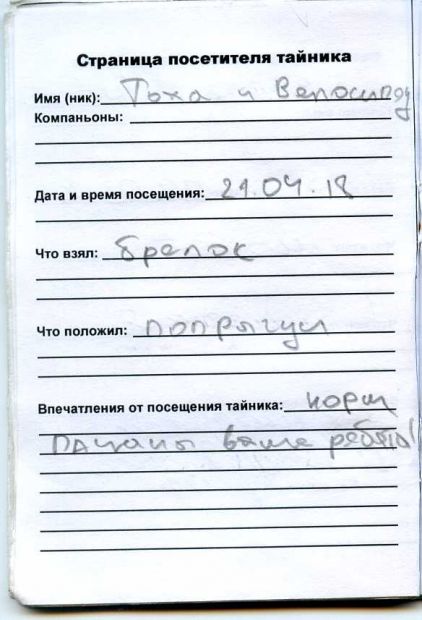 Страница посетителя тайника
Имя (ник): Тоха и Велосипед
Компаньоны:
Дата и время посещения: 21.04.18
Что взял: брелок
Что положил: попрыгун
Впечатления от посещения тайника: норм
пацаны ваще ребята!